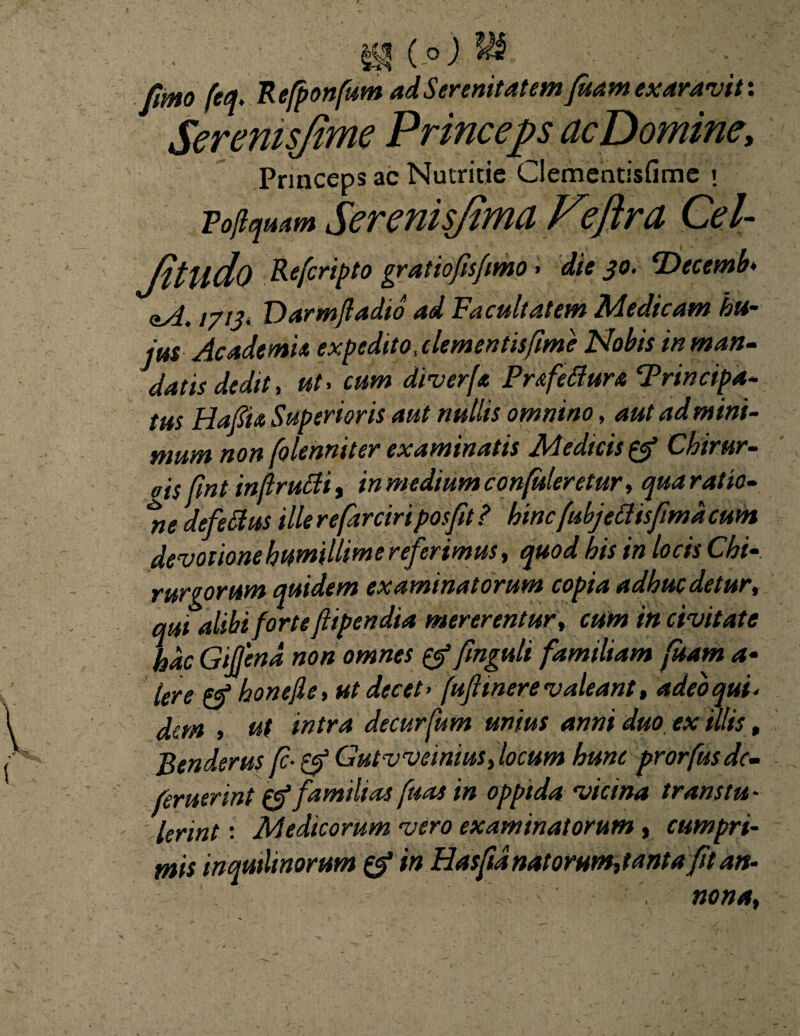 (o)
ſimo ſeq. Reſponſum ad Serenitatem ſuam exaravit:
Serenisſime Princeps ac Domine,
Princeps ac Nutritie Clementisſime !
Poſtquam Serenisſima Veſtra Cel-
ſitudo Reſcripto gratioſisſimo, die 30. Decemb.
A. 1713. Darmſtadio ad Facultatem Medicam hu-
jus Academiæ expedito, clementisſime Nobis in man-
datis dedit, ut, cum diverſæ Præfecturæ Principa-
tus Haſſiæ Superioris aut nullis omnino, aut ad mini-
mum non ſolenniter examinatis Medicis & Chirur-
gis ſint inſtructi, in medium conſuleretur, qua ratio-
ne defectus ille reſarciri posſit? hinc ſubjectisſimâ cum
devotione humillime referimus, quod his in locis Chi-
rurgorum quidem examinatorum copia adhuc detur,
qui alibi forte ſtipendia mererentur, cum in civitate
hâc Giſſenâ non omnes & ſinguli familiam ſuam a-
lere & honeſte, ut decet, ſuſtinere valeant, adeò qui-
dem , ut intra decurſum unius anni duo ex illis,
Benderus ſc. & Gutvveinius, locum hunc prorſus de-
ſeruerint & familias ſuas in oppida vicina transtu-
lerint : Medicorum vero examinatorum , cumpri-
mis inquilinorum & in Hasſiâ natorum, tanta ſit an-
nona,